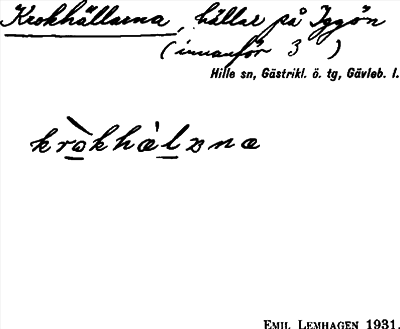 Krokhällarna, hällar på Iggön
(innanför 3 )
Hille sn, Gästrikl. ö. tg, Gävleb. l.
kròkhàlɐna
EMIL LEMHAGEN 1931.